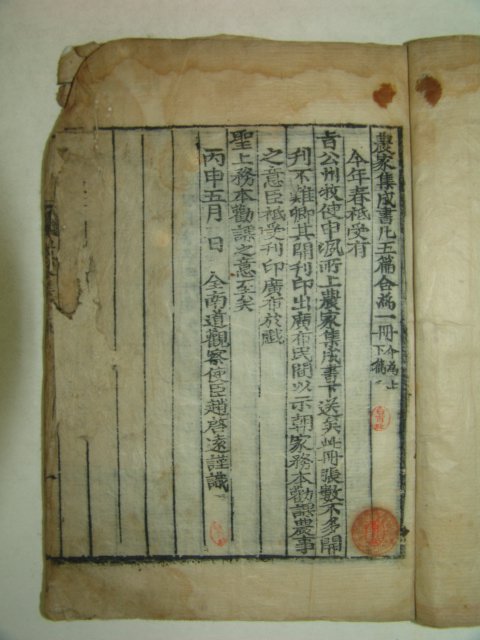 農家集成書凡五篇合為一冊
今年春祗受有
旨公州牧使申洬所上農家集成書下送矣此冊張數不多開
刊不難卿其開刊印出廣布民間以示朝家務本勸課農事
之意臣祗受刊印廣布於
聖上務本勸課之意至矣
丙申五月 日 全南道觀察使臣趙啓遠謹識